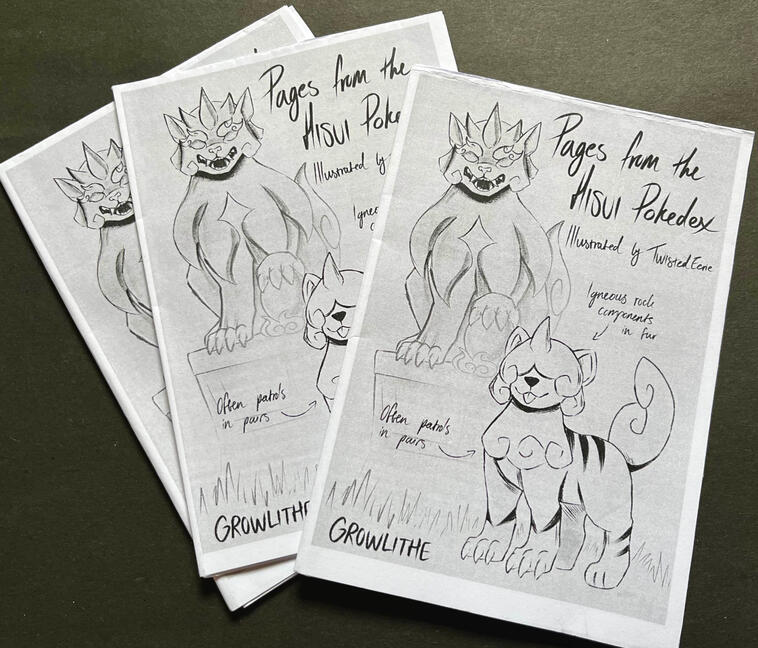 Pages from the
HISUI Poke
Illustrated by
Often patrols
in pairs
GROWLITHE
Pages from the
HISUI Pokedex
Illustrated by TwistedEerie
Igneous rock
components
in fur
Often patrols
in pairs
GROWLITHE